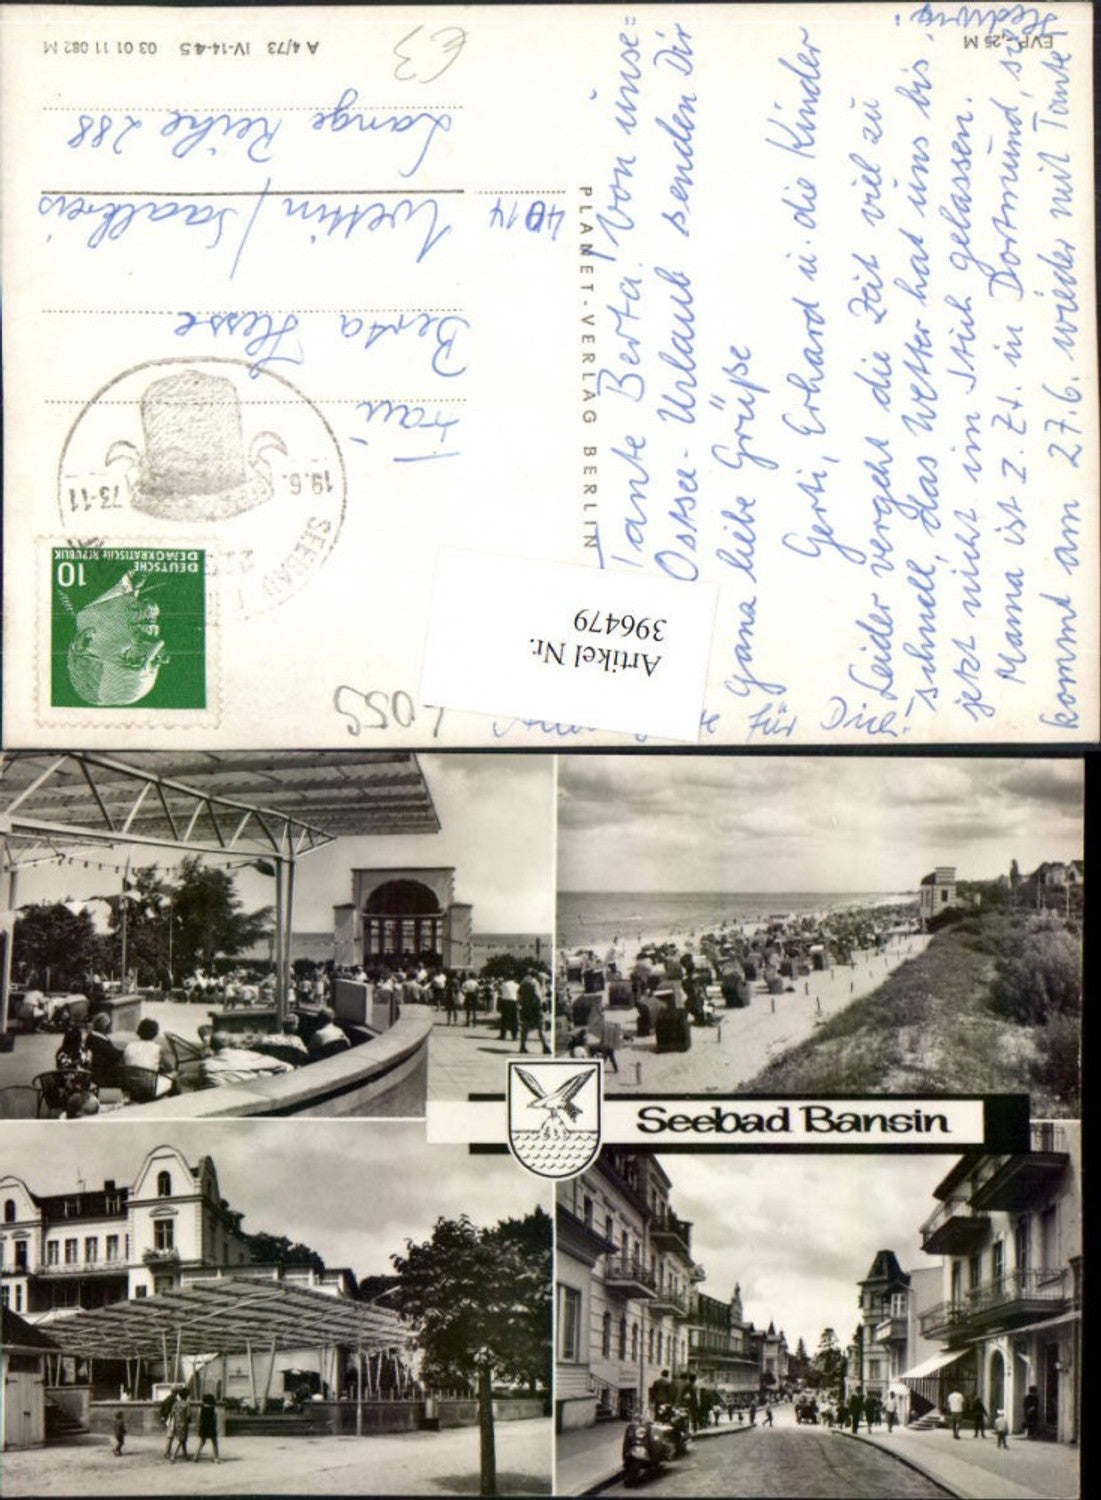 Tante Berta! Von unse=
Ostsee-Urlaub senden Dir
ganz liebe Grüße
Gerti, Erhard u. die Kinder
Leider vergeht die Zeit viel zu
schnell, das Wetter hat uns bis
jetzt nicht im Stich gelassen.
Mama ist z. Zt. in Dortmund, sie
kommt am 27.6. wieder mit Tante
Hedwig.
für Dich!
PLANET-VERLAG BERLIN
EVP -,25 M
A 4/73 IV-14-45 03 01 11 082 M
€3
DEUTSCHE
DEMOKRATISCHE REPUBLIK
10
SEEBAD
19.6.73-11
Frau
Berta Hesse
4014 Wettin/Saalkreis
Lange Reihe 288
Artikel Nr.
396479
Seebad Bansin